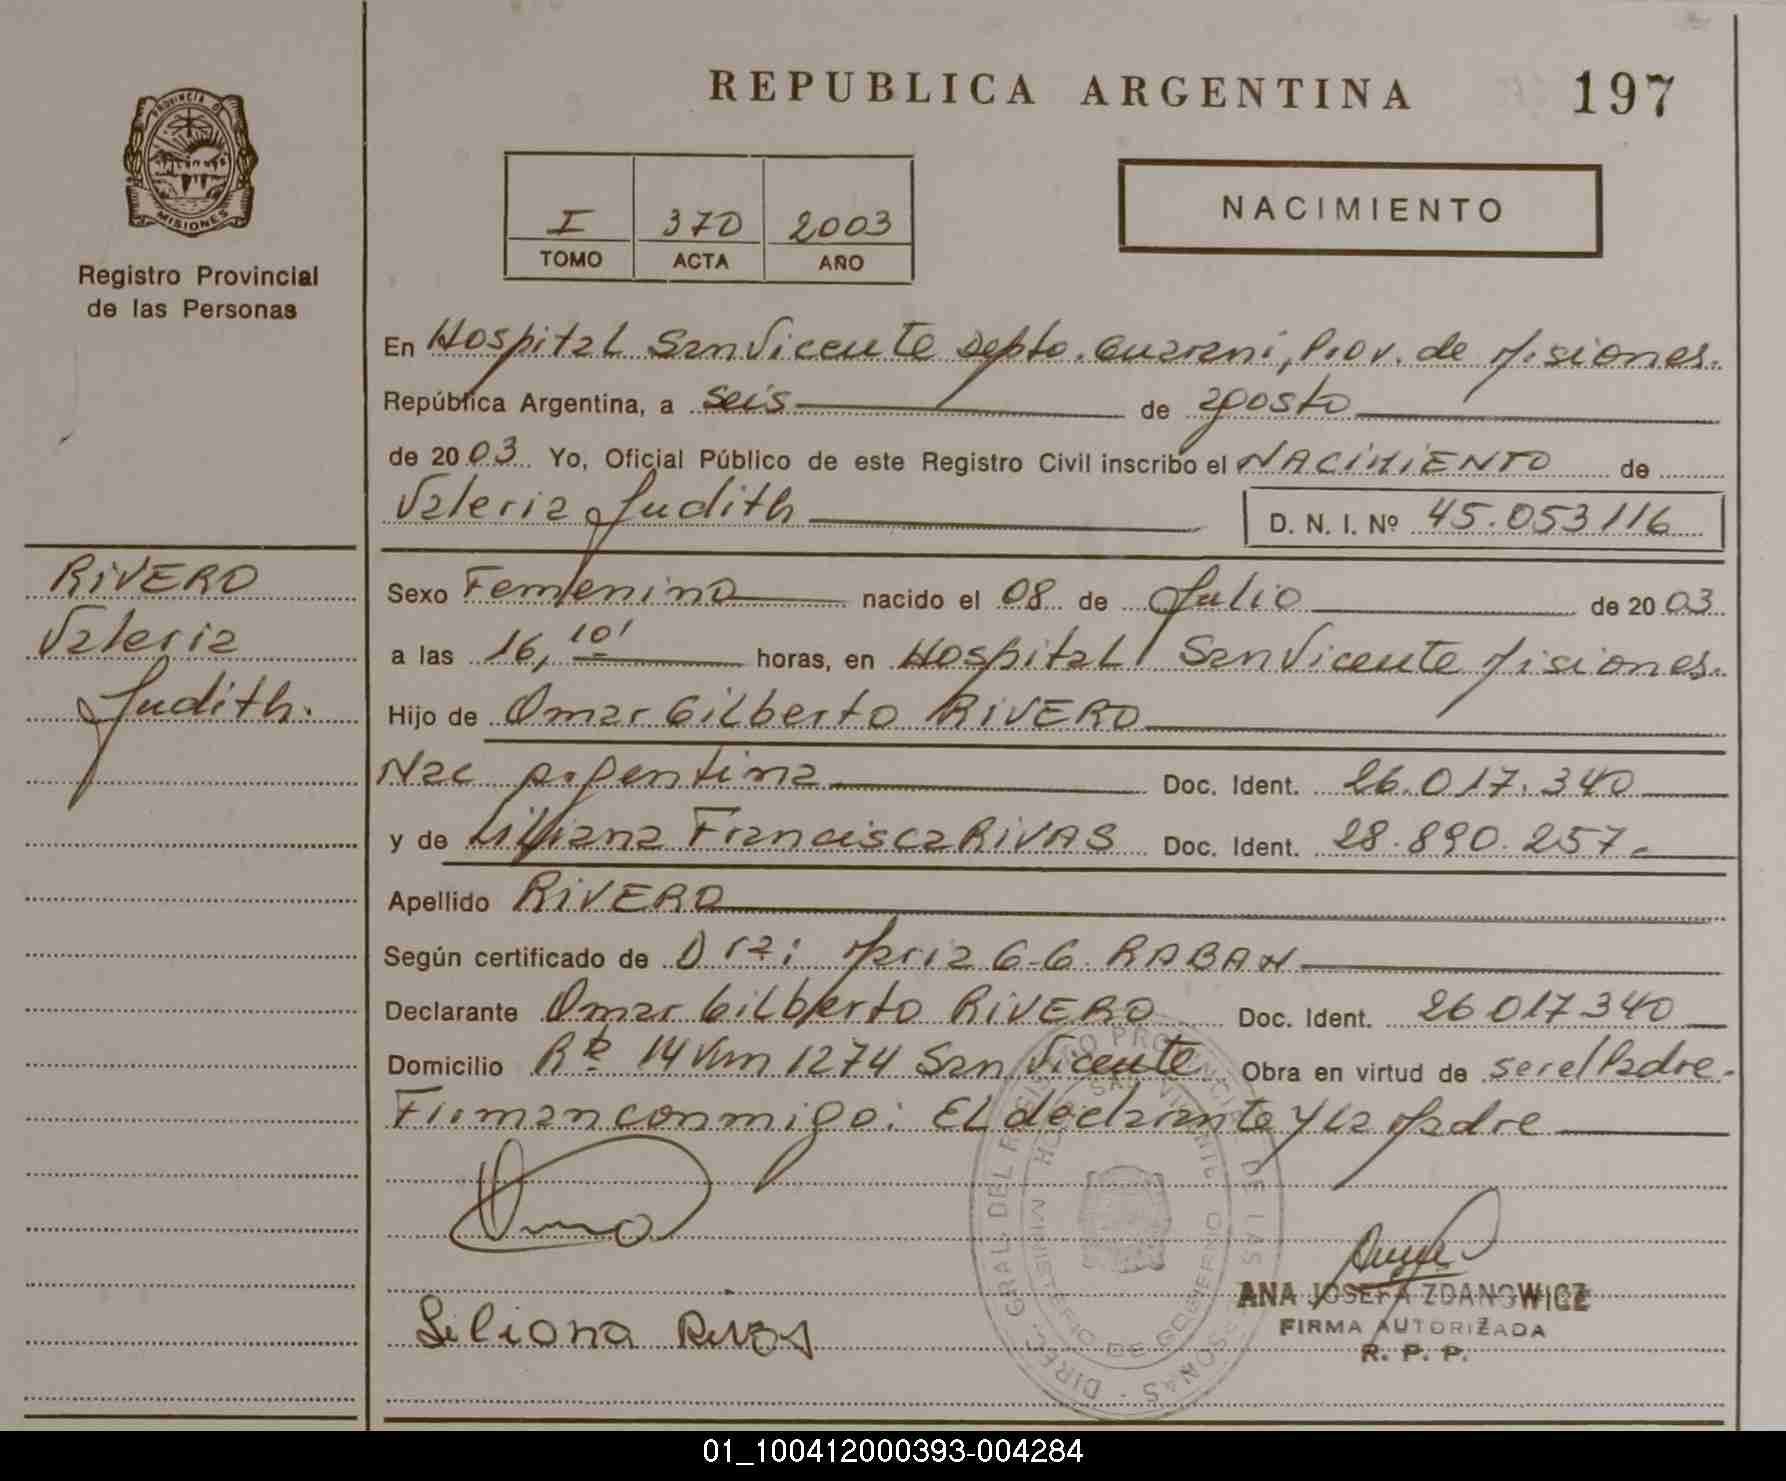 REPUBLICA ARGENTINA 197
PROVINCIA D
MISIONES
Registro Provincial
de las Personas
I 370 2003
TOMO ACTA AÑO
NACIMIENTO
En Hospital San Vicente Depto. Guarani, Prov. de Misiones.
República Argentina, a seis de agosto
de 2003 Yo, Oficial Público de este Registro Civil inscribo el NACIMIENTO de
Valeria Judith D. N. I. Nº 45.053116
RIVERO
Valeria
Judith.
Sexo Femenino nacido el 08 de Julio de 2003
a las 16, 10' horas, en Hospital San Vicente Misiones.
Hijo de Omar Gilberto RIVERO
Nac Argentina Doc. Ident. 26.017.340
y de Liliana Francisca RIVAS Doc. Ident. 28.890.257.
Apellido RIVERO
Según certificado de Dra: Maria G. G. RABAN
Declarante Omar Gilberto RIVERO Doc. Ident. 26017340
Domicilio 14 Km 1274 San Vicente Obra en virtud de ser el Padre.
Firman conmigo: El declarante y la Madre
Liliana Rivas
ANA JOSEFA ZDANOWICZ
FIRMA AUTORIZADA
R. P. P.
DIREC. GRAL. DEL REGISTRO PROVINCIAL DE LAS PERSONAS
MINISTERIO DE GOBIERNO
01_100412000393-004284